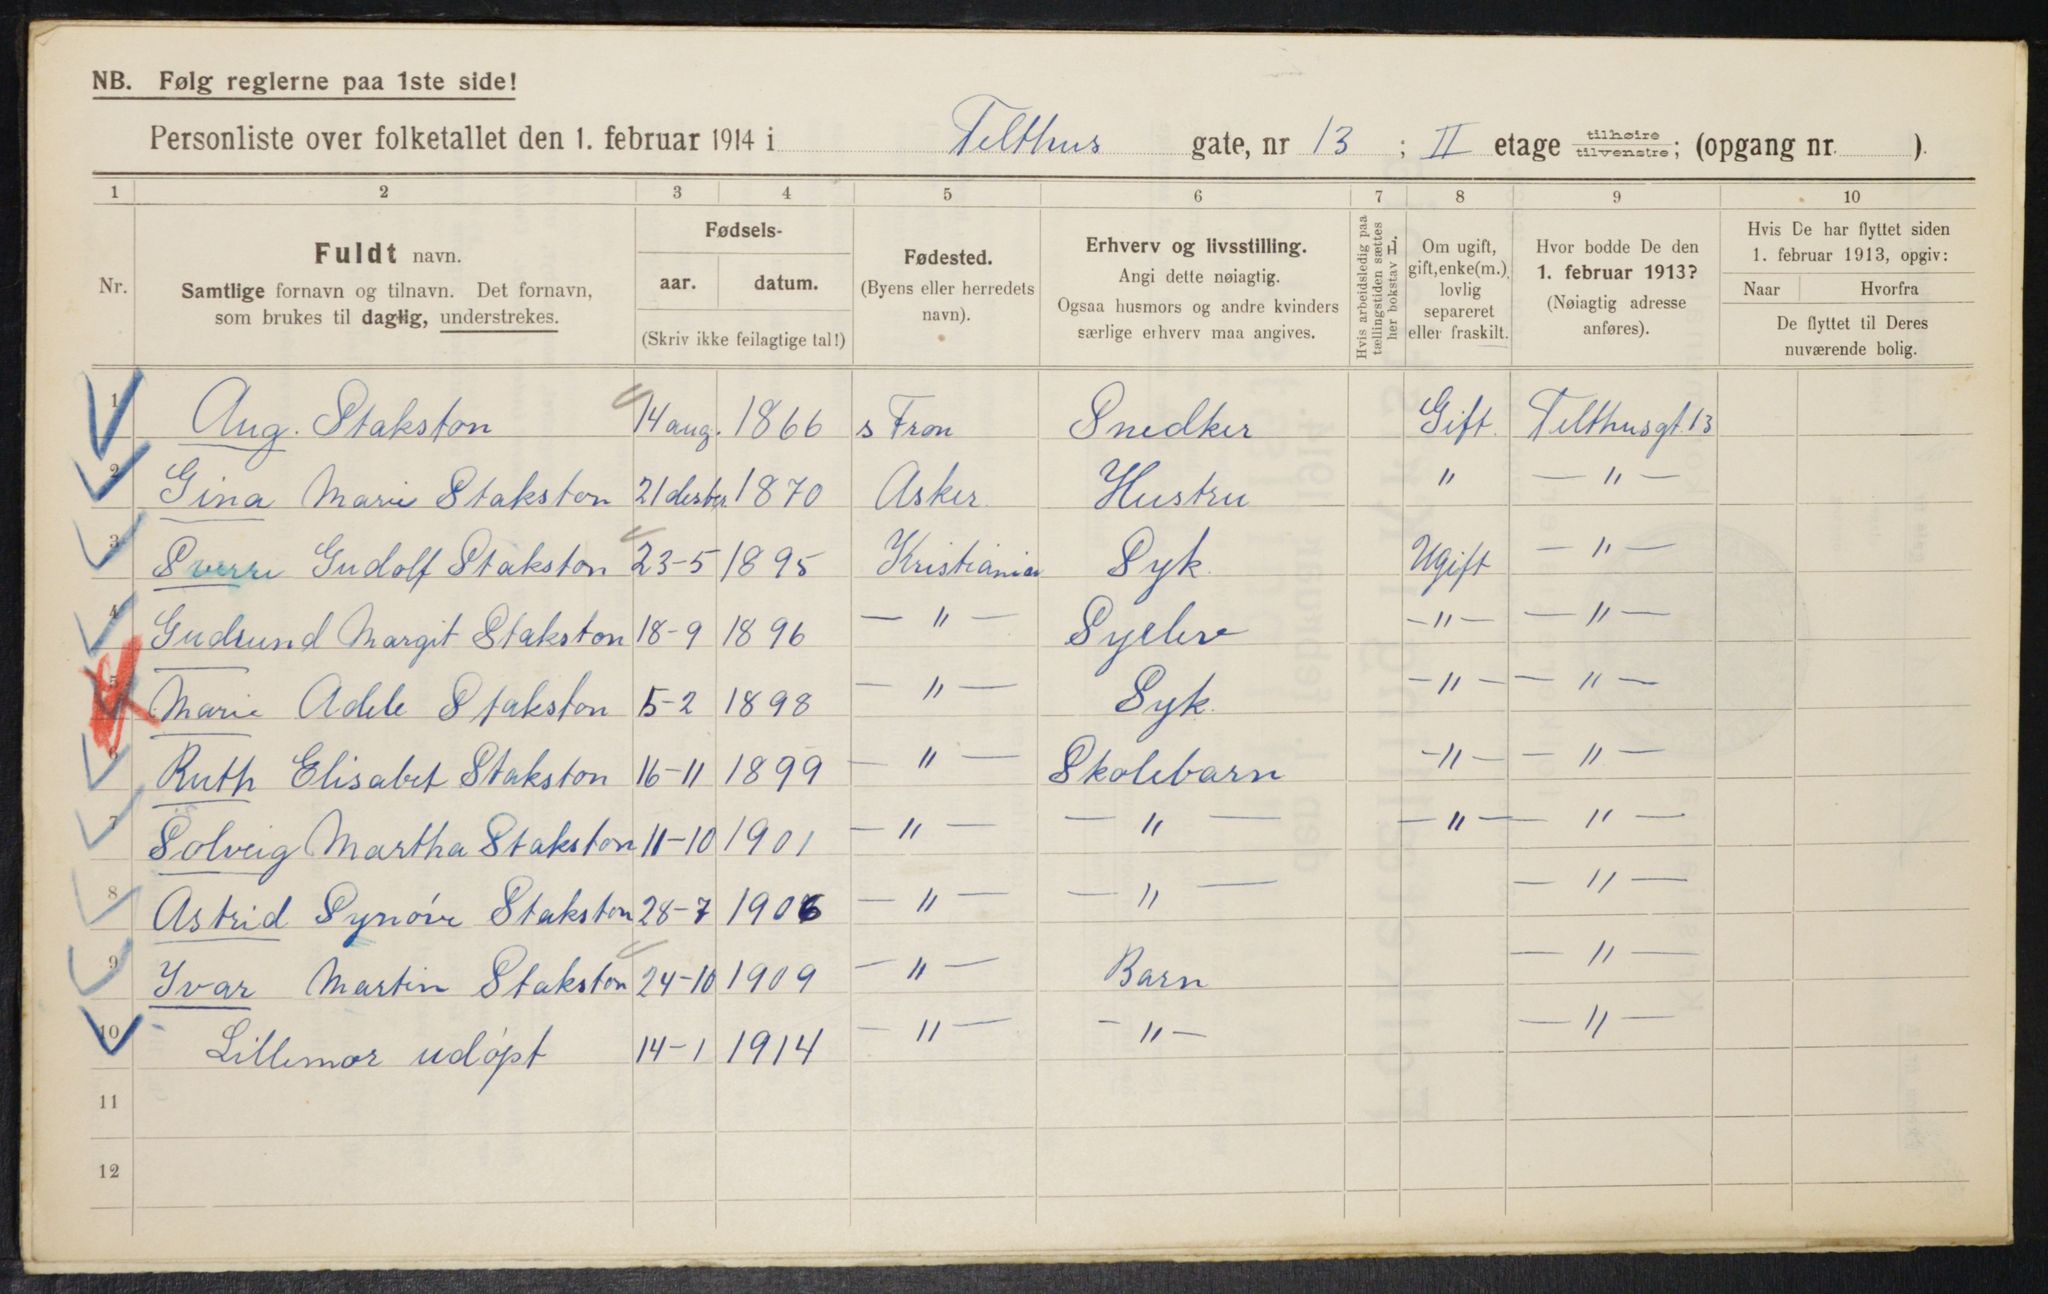 NB. Følg reglerne paa 1ste side!
Personliste over folketallet den 1. februar 1914 i Telthus gate, nr 13 ; II etage tilhøire/tilvenstre; (opgang nr. ).
1 2 3 4 5 6 7 8 9 10
Nr.
Fuldt navn.
Samtlige fornavn og tilnavn. Det fornavn,
som brukes til daglig, understrekes.
Fødsels-
aar. datum.
(Skriv ikke feilagtige tal!)
Fødested.
(Byens eller herredets
navn).
Erhverv og livsstilling.
Angi dette nøiagtig.
Ogsaa husmors og andre kvinders
særlige erhverv maa angives.
Hvis arbeidsledig paa
tællingstiden sættes
her bokstav L.
Om ugift,
gift, enke(m.),
lovlig
separeret
eller fraskilt.
Hvor bodde De den
1. februar 1913?
(Nøiagtig adresse
anføres).
Hvis De har flyttet siden
1. februar 1913, opgiv:
Naar Hvorfra
De flyttet til Deres
nuværende bolig.
1 Aug. Stakston 14 aug. 1866 s Fron Snedker Gift. Telthusgt. 13
2 Gina Marie Stakston 21 desbr 1870 Asker Hustru " — " —
3 Sverre Gudolf Stakston 23-5 1895 Kristiania Syk. Ugift — " —
4 Gudrund Margit Stakston 18-9 1896 — " — Syelev — " — — " —
5 Marie Adele Stakston 5-2 1898 — " — Syk. — " — — " —
6 Ruth Elisabet Stakston 16-11 1899 — " — Skolebarn — " — — " —
7 Solveig Martha Stakston 11-10 1901 — " — — " — — " — — " —
8 Astrid Synøve Stakston 28-7 1906 — " — — " — — " —
9 Yvar Martin Stakston 24-10 1909 — " — Barn — " —
10 Lillemor udøpt 14-1 1914 — " — — " — — " —
11
12